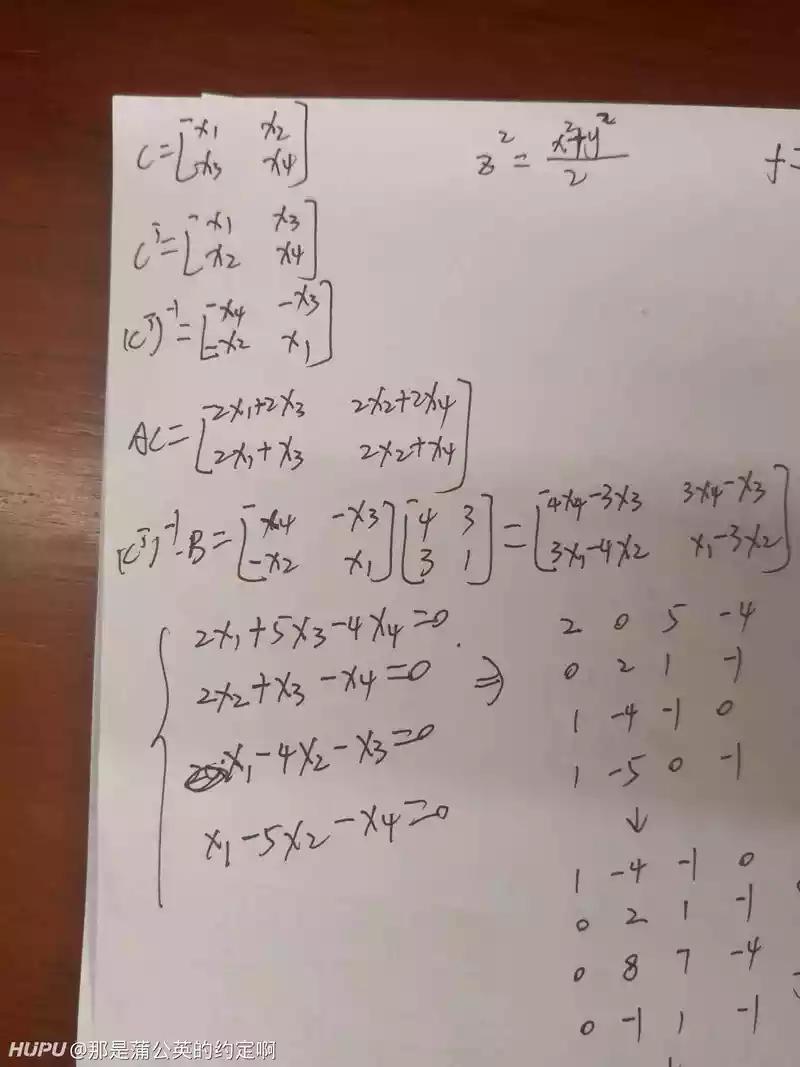 C = [x1 x2
x3 x4]
z² = (x²+y²)/2
f=
Cᵀ = [x1 x3
x2 x4]
(Cᵀ)⁻¹ = [x4 -x3
-x2 x1]
AC = [2x1+2x3 2x2+2x4
2x1+x3 2x2+x4]
(Cᵀ)⁻¹·B = [x4 -x3
-x2 x1] [4 3
3 1] = [4x4-3x3 3x4-x3
3x1-4x2 x1-3x2]
{ 2x1+5x3-4x4=0
2x2+x3-x4=0 ⇒
x1-4x2-x3=0
x1-5x2-x4=0
2 0 5 -4
0 2 1 -1
1 -4 -1 0
1 -5 0 -1
↓
1 -4 -1 0
0 2 1 -1
0 8 7 -4
0 -1 1 -1
HUPU @那是蒲公英的约定啊